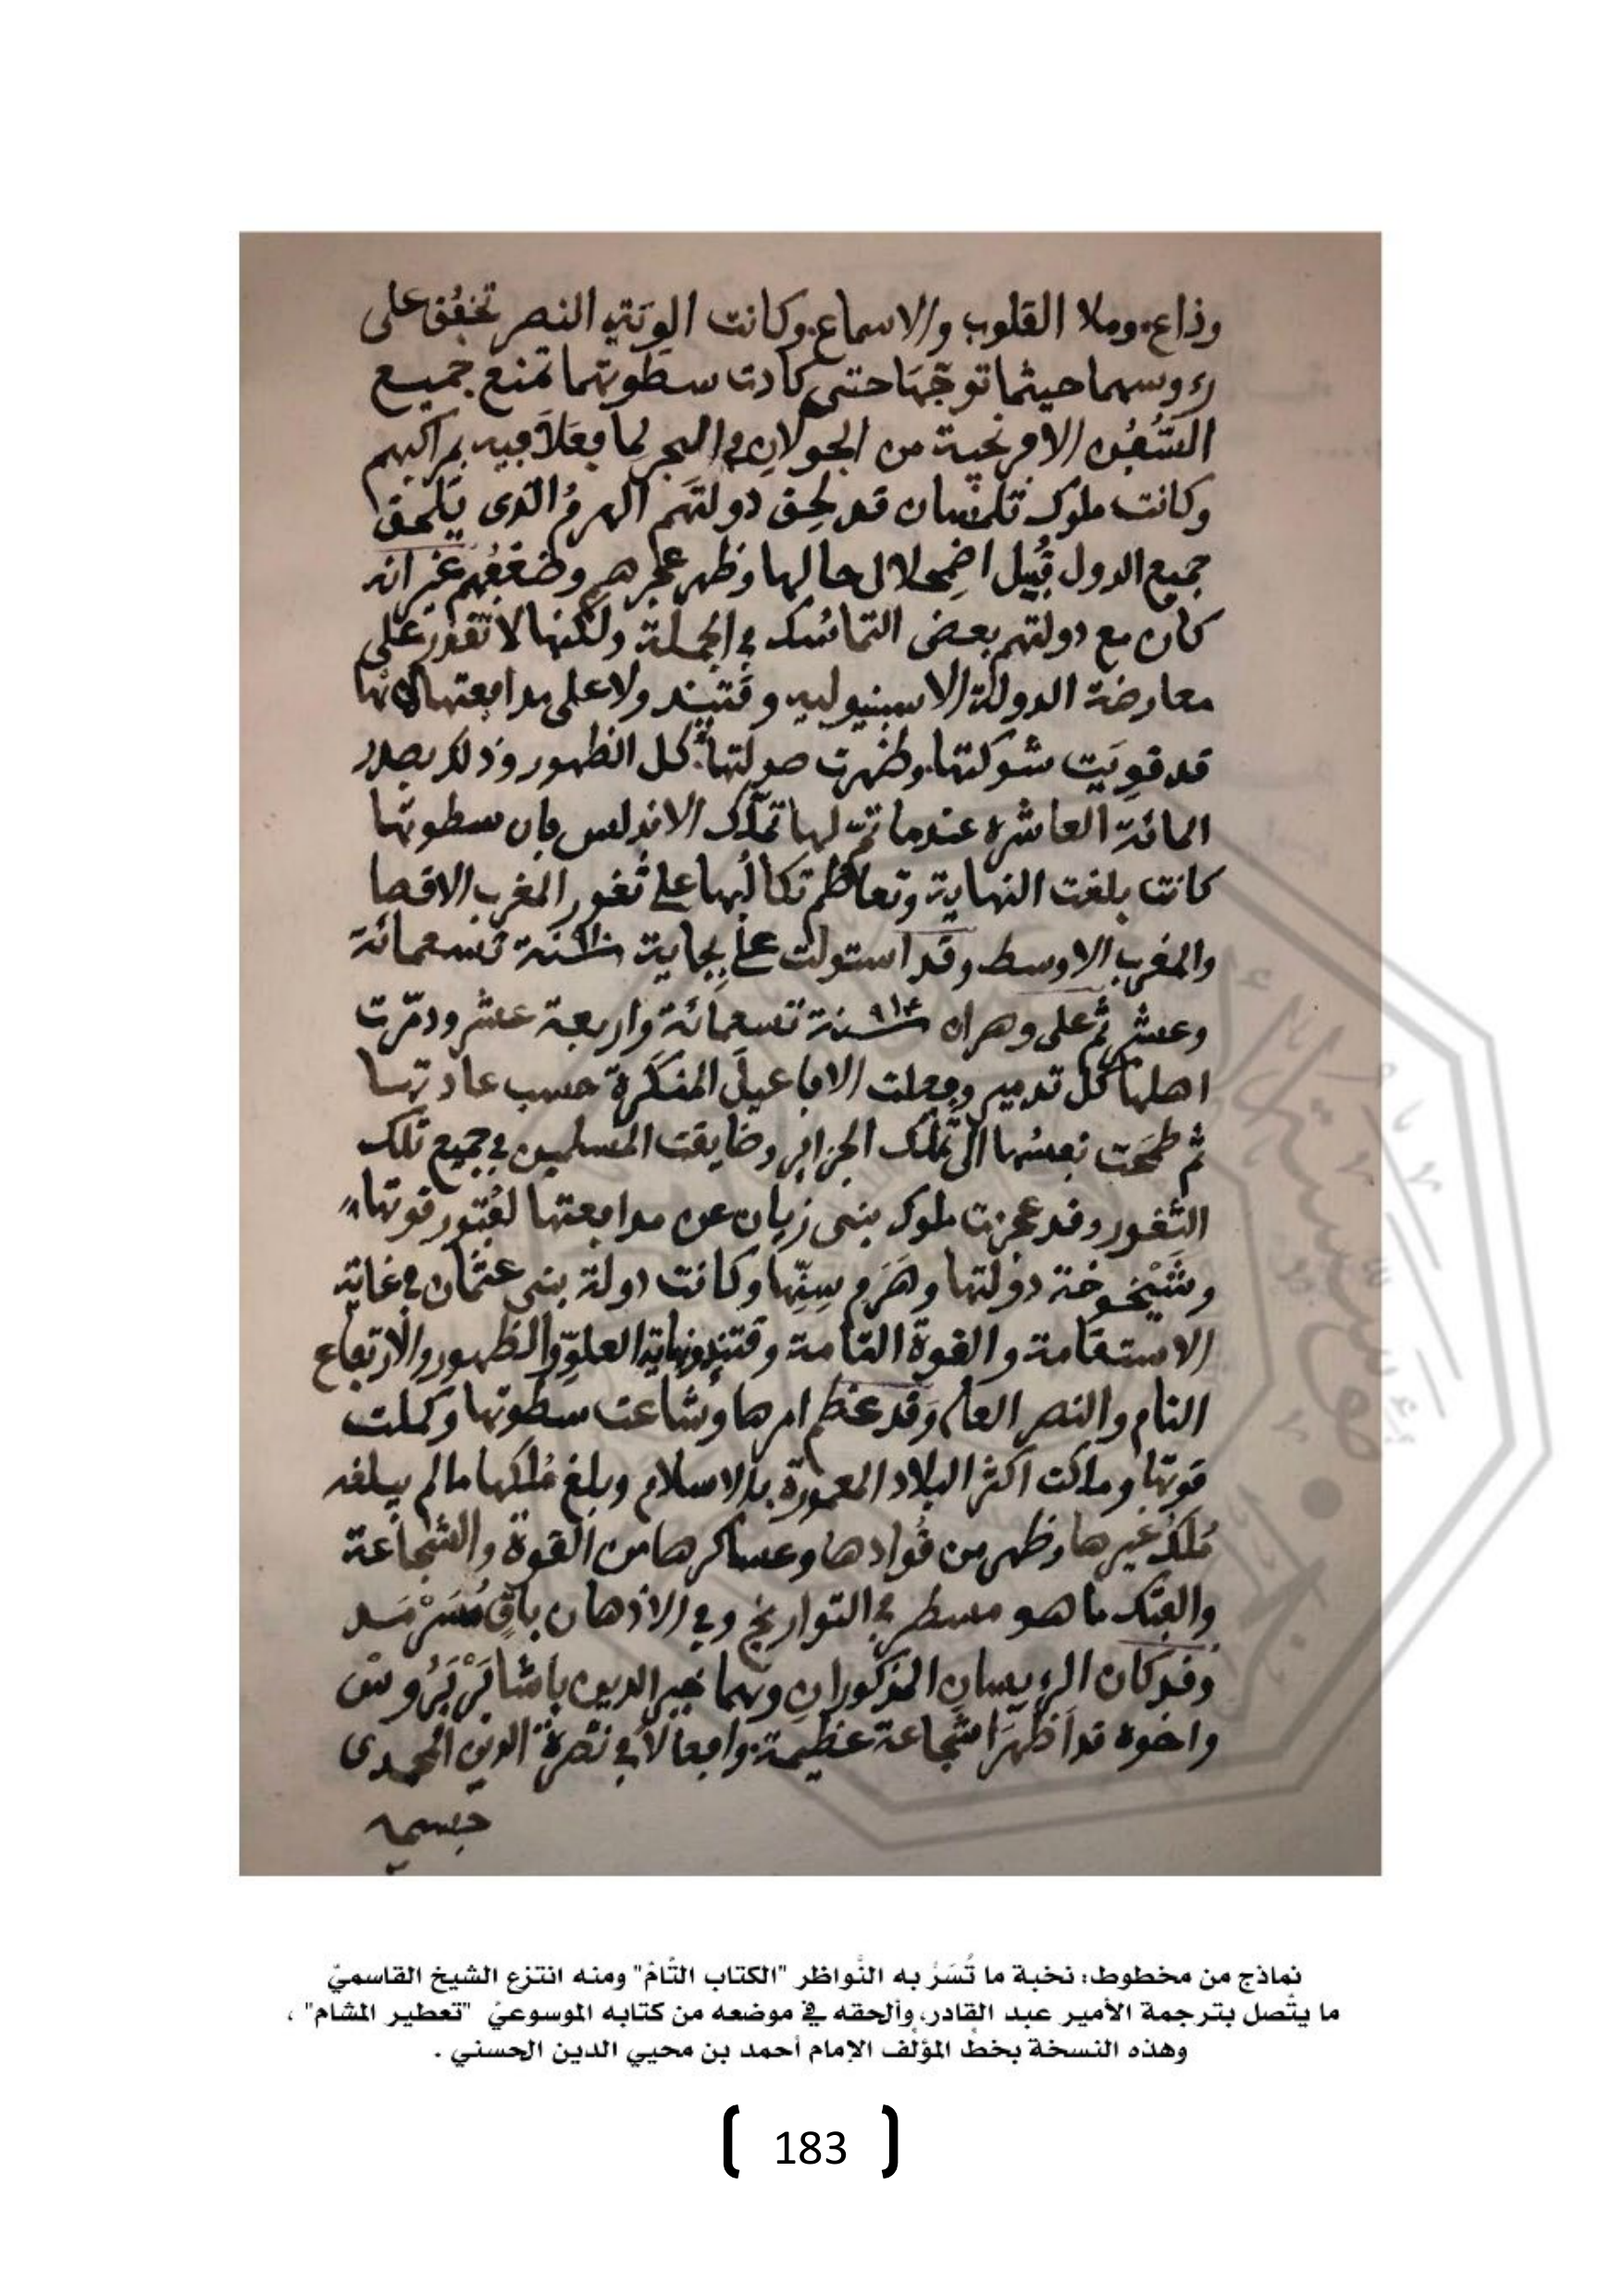 وذاع، وملا القلوب والاسماع، وكانت الوية النصر تخفُق على
رءوسهما حيثما توجّهَا حتى كادت سطوتهما تمنع جميع
السُّفُن الافرنجية من الجولان في البحر لِما فعَلاَ فيه بمراكبهم
وكانت ملوك تلمسان قد لحِق دولتهم الهرمُ الذى يَلحق
جميع الدول قُبيل اضمِحلال حالها وظهر عجزهم وضَعْفُهم غير انه
كان مع دولتهم بعض التماسُك في الجملة ولكنها لا تقدر على
معارضة الدولة الاسبنيولية وقتئذ ولا على مدافعتها لانها
قد قوِيَت شوكتها، وظهرت صولتها، كل الظهور وذلك بصدر
المائة العاشرة عندما تمّ لها تملّك الاندلس فان سطوتها
كانت بلغت النهاية وتعاظم تكالُبها على ثغور المغرب الاقصا
والمغرب الاوسط وقد استولت على بِجاية سنة ٩١٠ تسعمائة
وعشر ثم على وهران سنة ٩١٤ تسعمائة واربعة عشر ودمّرت
اهلها كل تدمير وفعلت الافاعيلَ المنكَرة حسب عادتها
ثم طمحَت نفسُها الى تملّك الجزائر وضايقت المسلمين في جميع تلك
الثغور وقد عجزت ملوك بنى زيان عن مدافعتها لفُتور قوتها،
وشَيْخوخة دولتها وهَرَم سِنِّها وكانت دولة بنى عثمان في غاية
الاستقامة والقوة التامة وقتئذ ونهاية العلوّ والظهور والارتفاع
التام والنصر العام وقد عظم امرها وشاعت سطوتها وكملت
قوتها وملكت اكثر البلاد المعمورة بالاسلام وبلغ مُلكها ما لم يبلغه
مُلكُ غيرها وظهر من قُوادها وعساكرها من القوة والشجاعة
والفتك ما هو مسطر في التواريخ وفي الاذهان باقٍ مُسَرْمَد
وقد كان الريسان المذكوران وهما خير الدين باشا بَرْبَرُوس
واخوه قد اَظهرَا شجاعة عظيمة، وافعالاً في نصْرة الدين المحمدى
جسيمة
نماذج من مخطوط: نخبة ما تُسَرُّ به النَّواظر "الكتاب التَّامّ" ومنه انتزع الشيخ القاسميّ
ما يتَّصل بترجمة الأمير عبد القادر، وألحقه في موضعه من كتابه الموسوعيّ "تعطير المشام" ،
وهذه النسخة بخطِّ المؤلِّف الإمام أحمد بن محيي الدين الحسني .
[ 183 ]